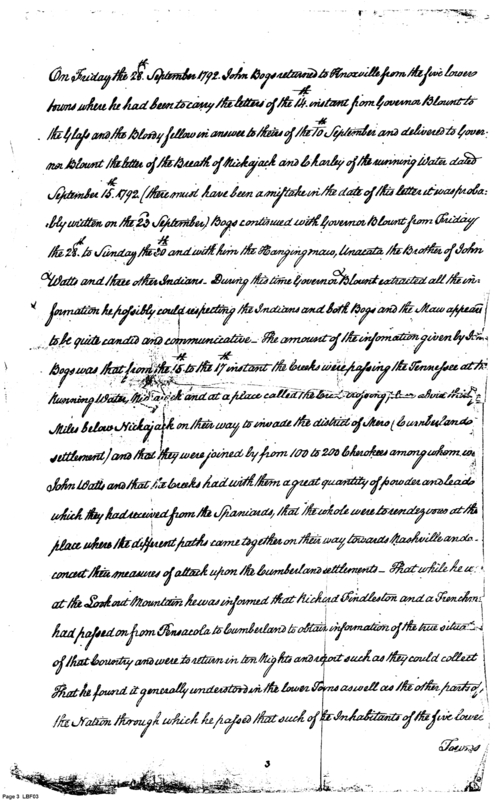 On Friday the 28th. September 1792. John Bogs returned to Knoxville from the five lower
towns where he had been to carry the letters of the 14th. instant from Governor Blount to
the Glass and the Bloody fellow in answer to theirs of the 10th September and delivered to Gover-
nor Blount the letter of the Breath of Nickajack and Charley of the running Water dated
September 15th. 1792 (there must have been a mistake in the date of this letter it was proba-
bly written on the 23 September) Bogs continued with Governor Blount from Friday
the 28th. to Sunday the 30th and with him the Hanging maw, Unacata the Brother of John
Watts and three other Indians_ During this time Governor Blount extracted all the in-
formation he possibly could respecting the Indians and both Bogs and the Maw appear
to be quite candid and communicative_ The amount of the infomation given by
Bogs was that from the 15th to the 17th instant the Creeks were passing the Tennessee at
Running Water, and at a place called the crossing about
Miles below Nickajack on their way to invade the district of Mero (Cumberland
settlement) and that they were joined by from 100 to 200 Cherokees among whom
John Watts and that the Creeks had with them a great quantity of powder and lead
which they had received from the Spaniards, that the whole were to rendezvous at the
place where the different paths came together on their way towards Nashville and
concert their measures of attack upon the Cumberland settlements_ That while he
at the Look out Mountain he was informed that Richard Findleston and a Frenchm
had passed on from Pensacola to Cumberland to obtain information of the true
of that Country and were to return in ten Nights and report such as they could collect
That he found it generally understood in the lower Towns as well as the other parts of
the Nation through which he passed that such of the Inhabitants of the five lower
Towns
3
Page 3 LBF03